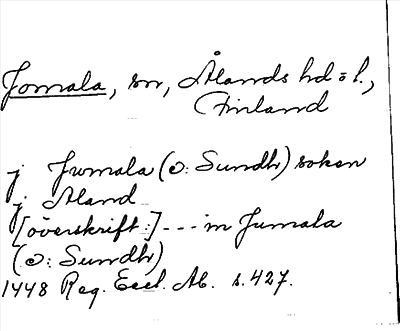 Jomala, sn, Ålands hd o l.,
Finland
j Jwmala (o: Sundh) sokan
j Aland
[överskrift:] --- in Jumala
(o: Sundh)
1448 Reg. Eccl. Ab. s. 427.